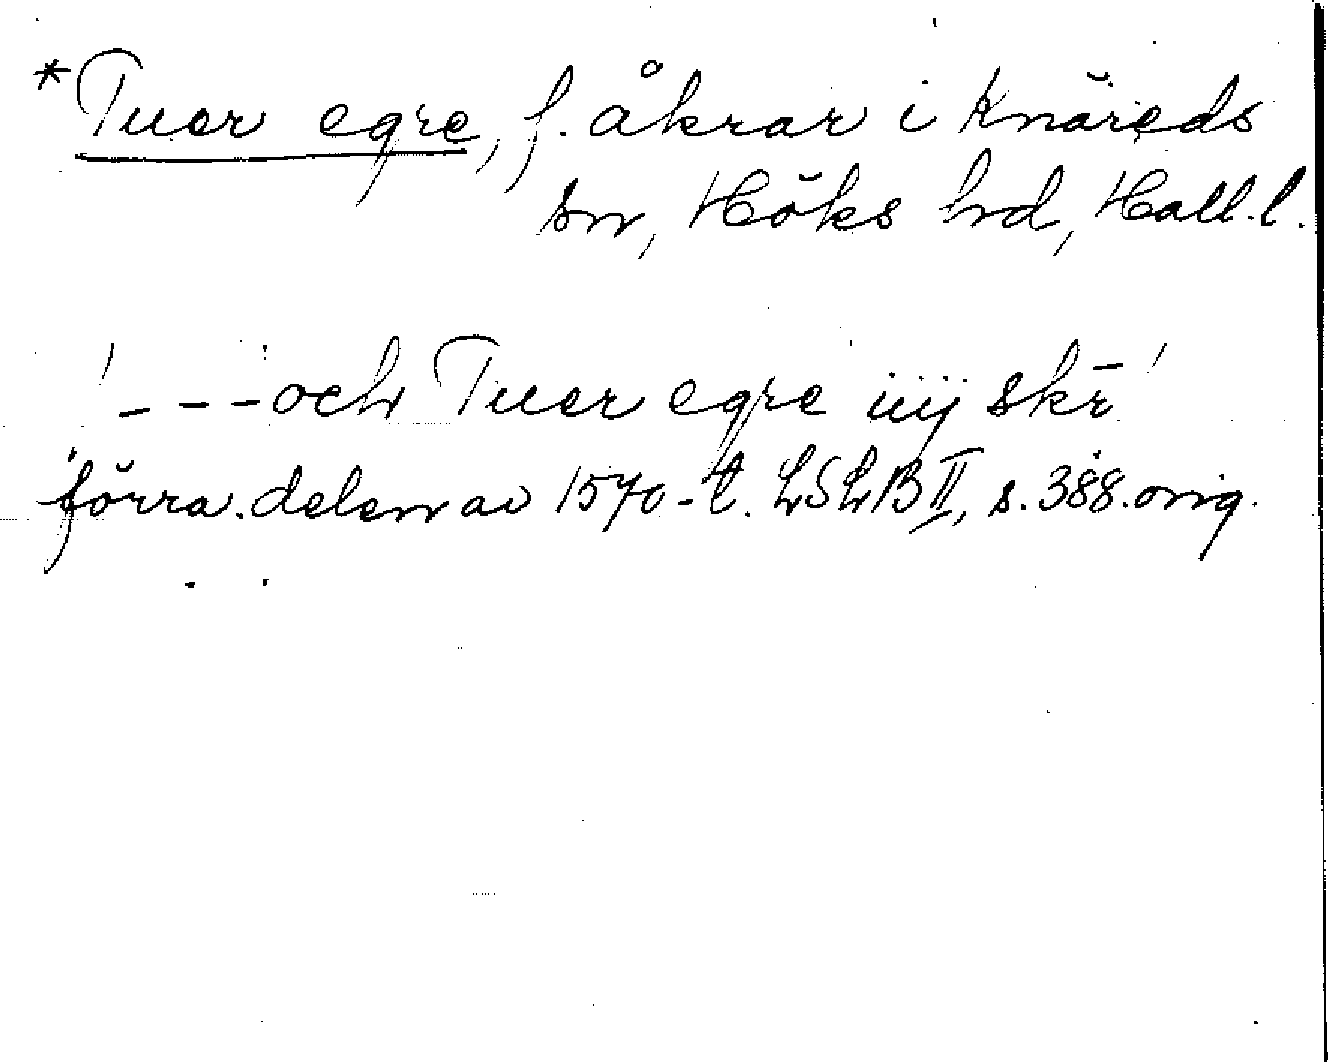 *Tuer egre, f. åkrar i Knäreds
sn, Höks hd, Hall. l.
' - - - och Tuer egre iiij skr̄ '
förra delen av 1570-t. LSLB II, s. 388. orig.